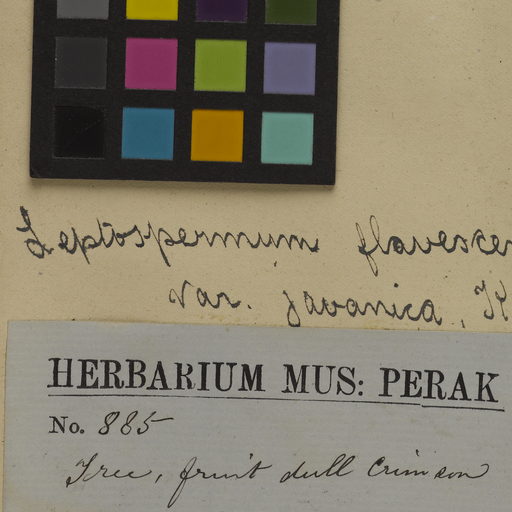 Leptospermum flavescen
var. javanica, K
HERBARIUM MUS: PERAK
No. 885
Tree, fruit dull crimson